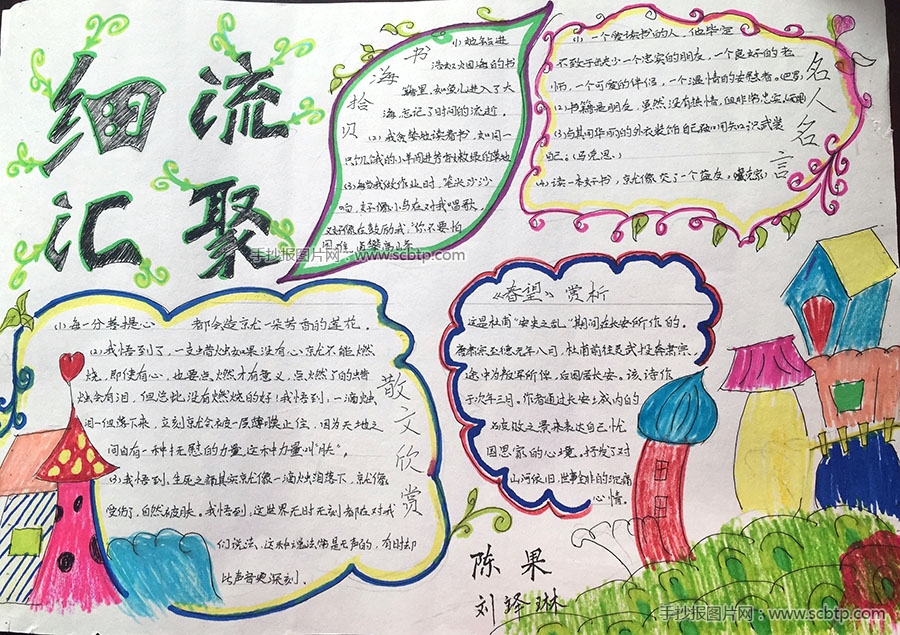 细流
汇聚
书海拾贝
(1)
浩如烟海的书
籍里,如鱼儿进入了大
海,忘记了时间的流逝。
(2)我贪婪地读着书,如同一
只饥饿的小羊闯进芳香嫩绿的草地
(3)每当我做作业时,笔尖沙沙
响,好像小鸟在对我唱歌,
又好像在鼓励我:你不要怕
困难,
名人名言
(1)一个爱读书的人,他毕定
不致于缺少一个忠实的朋友,一个良好的老
师,一个可爱的伴侣,一个温情的安慰者。
(2)书籍是朋友,虽然没有热情,但非常忠实
(3)与其用华丽的外衣装饰自己,不如用知识武装
自己。(马克思)
(4)读一本好书,就像交了一个益友。
散文欣赏
(1)每一分菩提心 都会绽放一朵芳香的莲花。
(2)我悟到了,一支蜡烛如果没有心就不能燃
烧,即使有心,也要点燃才有意义,点燃了的蜡
烛会有泪,但总比没有燃烧的好!我悟到,一滴烛
泪一但落来,立刻就会被一层薄膜止住,因为天地之
间自有一种抚慰的力量,这种力量叫"肤"。
(3)我悟到,生死之痛其实就像一滴烛泪落下,就像
受伤了,自然破肤。我悟到,这世界无时无刻都在对我
们说法,这种说法常是无声的,有时却
比声音更深刻。
《春望》赏析
这是杜甫"安史之乱"期间在长安所作的。
唐肃宗至德元年八月,杜甫前往灵武投奔肃宗,
途中为叛军所俘,后困居长安。该诗作
于次年三月。作者通过长安土城内的
败之景来表达自己忧
国思家的心境,抒发了对
山河依旧,世事全非的沉痛
心情。
陈果
刘择琳
手抄报图片网:www.scbtp.com
手抄报图片网:www.scbtp.com